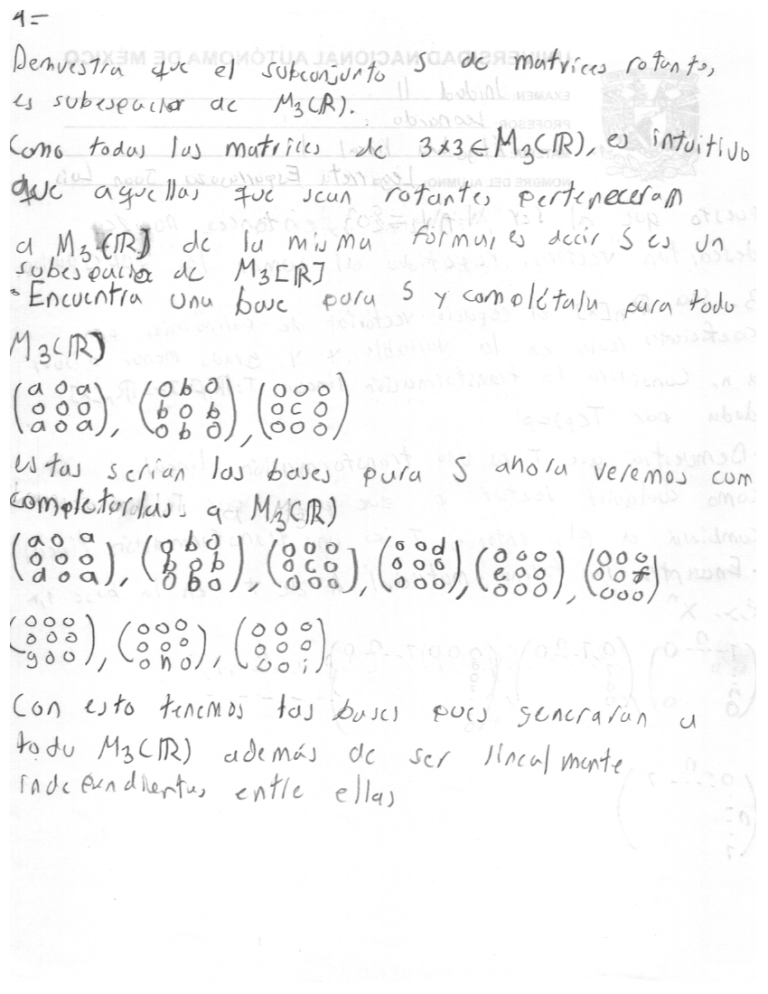 4=
Demuestra que el subconjunto S de matrices rotantes,
es subespacio de M₃(ℝ).
Como todas las matrices de 3x3 ∈ M₃(ℝ), es intuitivo
que aquellas que sean rotantes perteneceran
a M₃(ℝ) de la misma forma, es decir S es un
subespacio de M₃[ℝ]
• Encuentra una base para S y complétala para todo
M₃(ℝ)
(a 0 a / 0 0 0 / a 0 a), (0 b 0 / b 0 b / 0 b 0), (0 0 0 / 0 c 0 / 0 0 0)
estas serian las bases para S ahora veremos com
completarlas a M₃(ℝ)
(a 0 a / 0 0 0 / a 0 a), (0 b 0 / b 0 b / 0 b 0), (0 0 0 / 0 c 0 / 0 0 0), (0 0 d / 0 0 0 / 0 0 0), (0 0 0 / e 0 0 / 0 0 0), (0 0 0 / 0 0 f / 0 0 0)
(0 0 0 / 0 0 0 / g 0 0), (0 0 0 / 0 0 0 / 0 h 0), (0 0 0 / 0 0 0 / 0 0 i)
Con esto tenemos las bases pues generaran a
todo M₃(ℝ) además de ser linealmente
independientes entre ellas